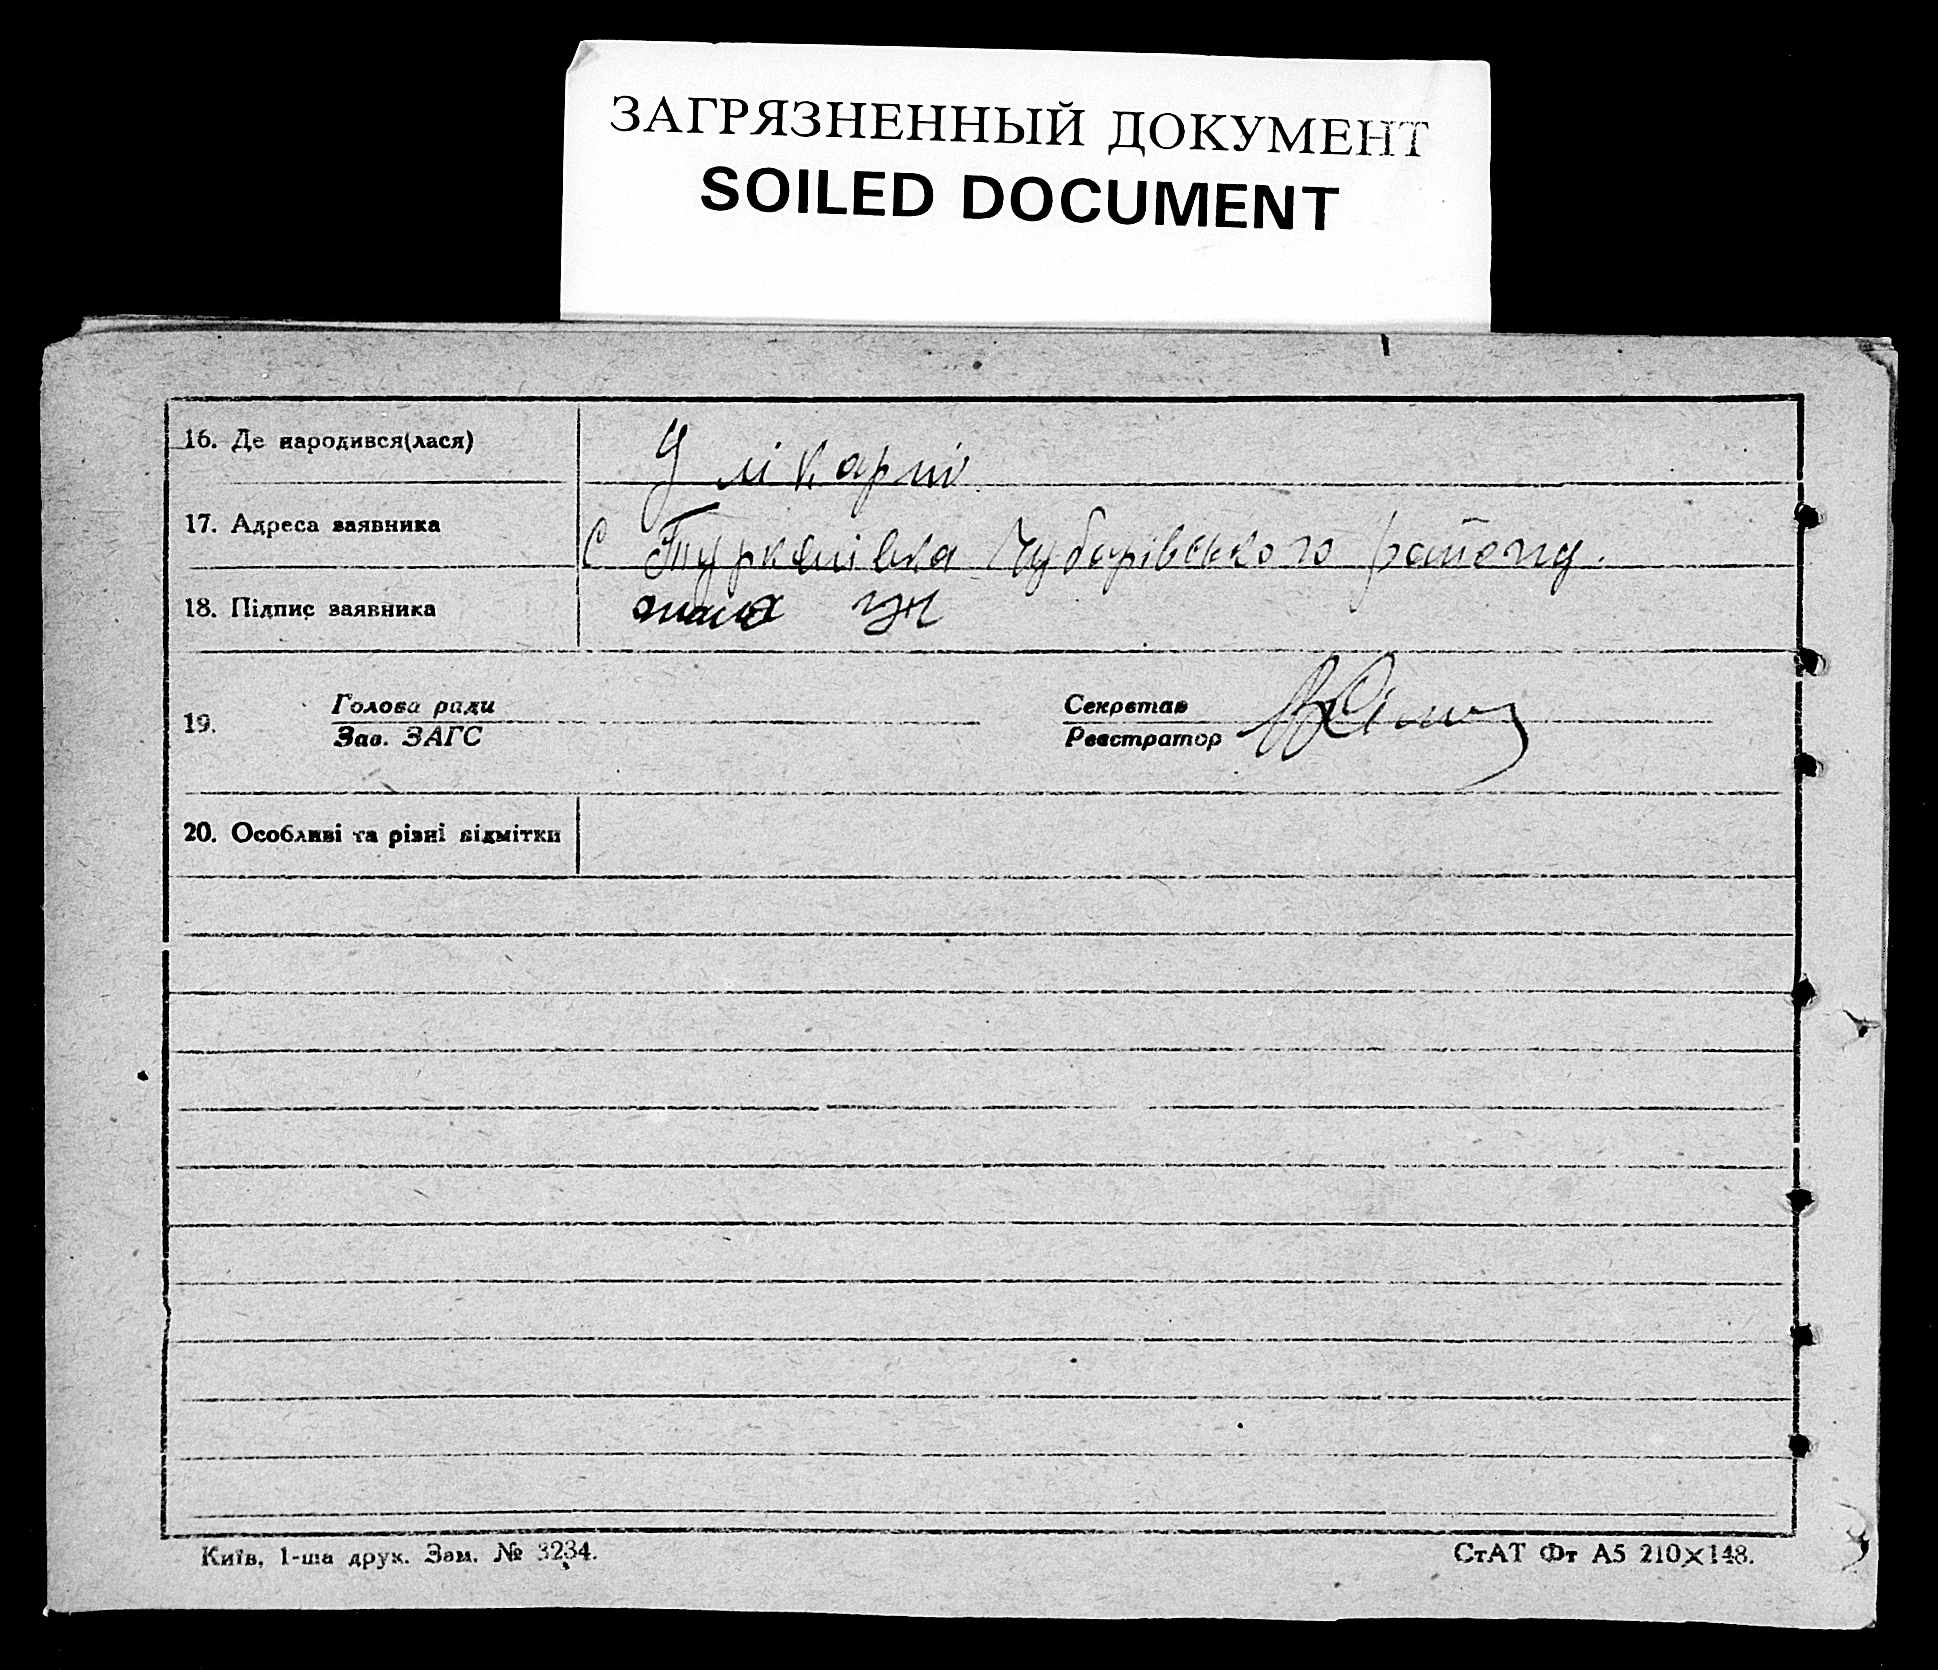 ЗАГРЯЗНЕННЫЙ ДОКУМЕНТ
SOILED DOCUMENT
16. Де народився(лася) У лікарні
17. Адреса заявника С Туркенівка Чубарівського району.
18. Підпис заявника
19. Голова ради Секретар
Зав. ЗАГС Реєстратор
20. Особливі та різні відмітки
Київ, 1-ша друк. Зам. № 3234. СтАТ Фт А5 210×148.